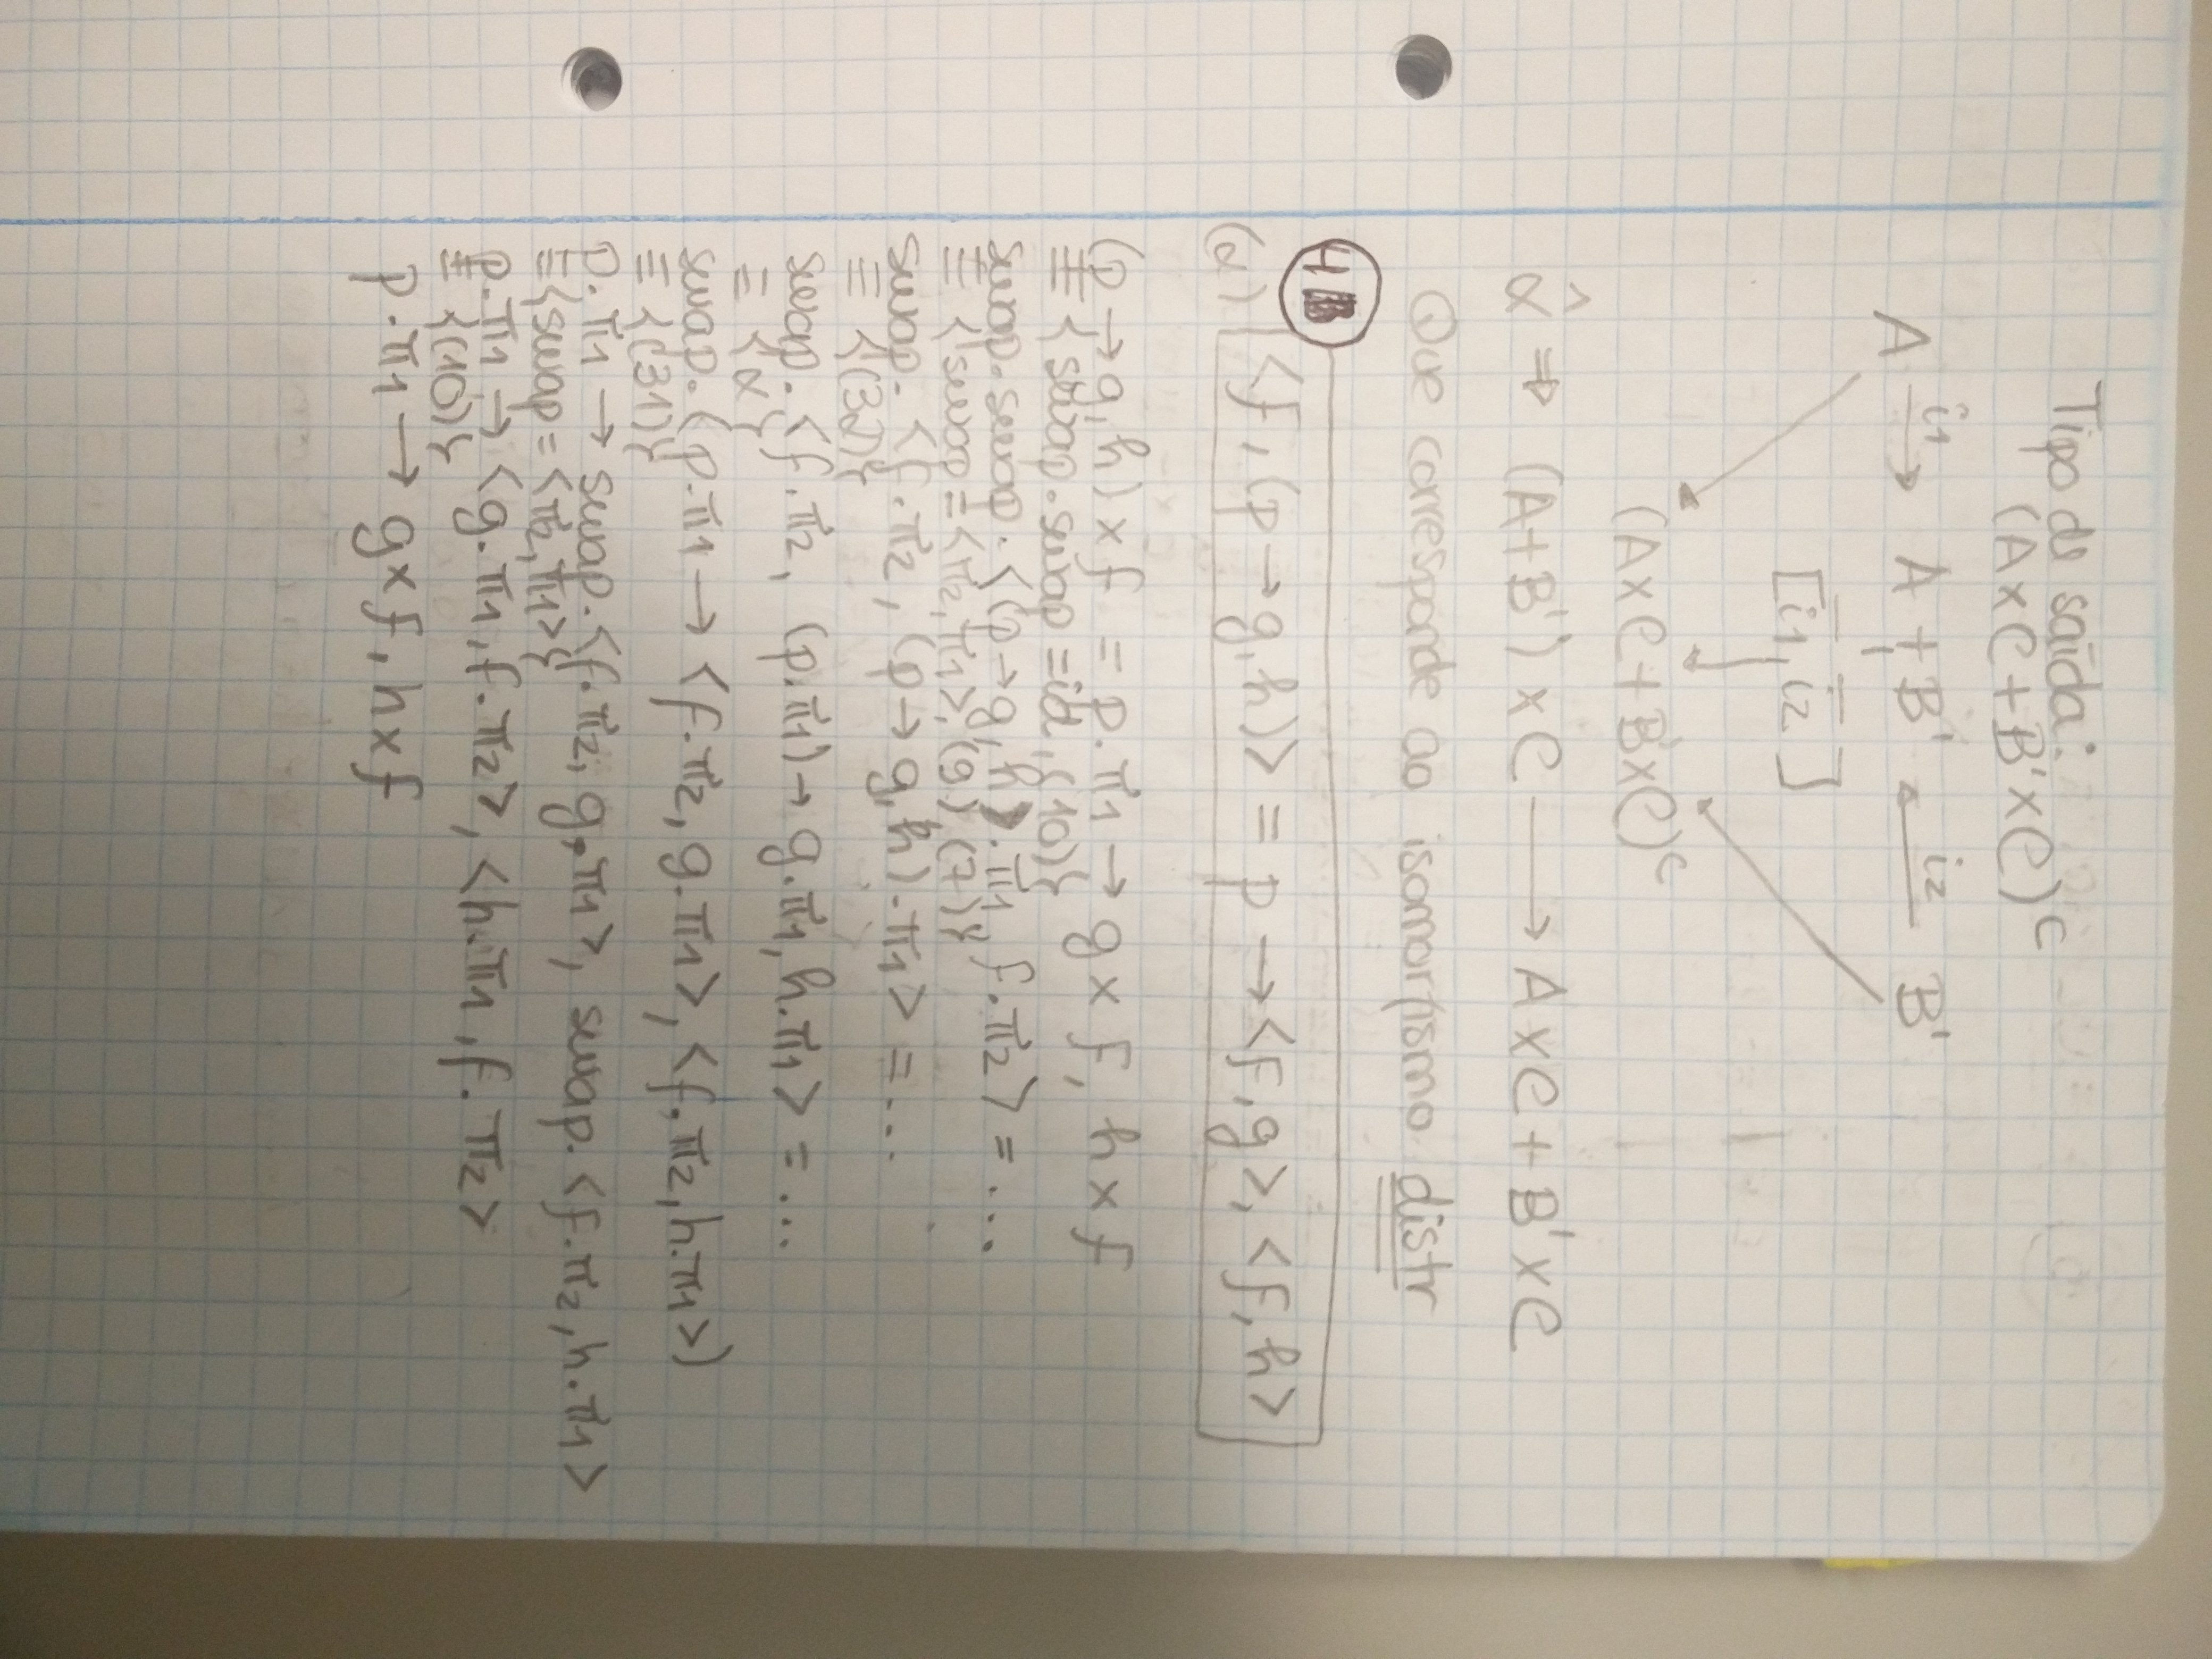 Tipo de saída:
(A×C+B'×C)^C
A i1→ A + B' ←i2 B'
[i̅1, i̅2]
(A×C+B'×C)^C
α̂ ⇒ (A+B') × C → A×C + B'×C
Que corresponde ao isomorfismo distr
(α) <f, (p→g,h)> = p → <f,g>, <f,h>
(p→g,h) × f = p.π1 → g×f, h×f
≡ {swap.swap=id, (10)}
swap.swap.<(p→g,h).π1, f.π2> = ...
≡ {swap=<π2,π1>, (9), (7)}
swap.<f.π2, (p→g,h).π1> = ...
≡ {(32)}
swap.<f.π2, (p.π1)→ g.π1, h.π1> = ...
≡ {α}
swap.(p.π1 → <f.π2, g.π1>, <f.π2, h.π1>)
≡ {(31)}
p.π1 → swap.<f.π2, g.π1>, swap.<f.π2, h.π1>
≡ {swap=<π2,π1>}
p.π1 → <g.π1, f.π2>, <h.π1, f.π2>
≡ {(10)}
p.π1 → g×f, h×f